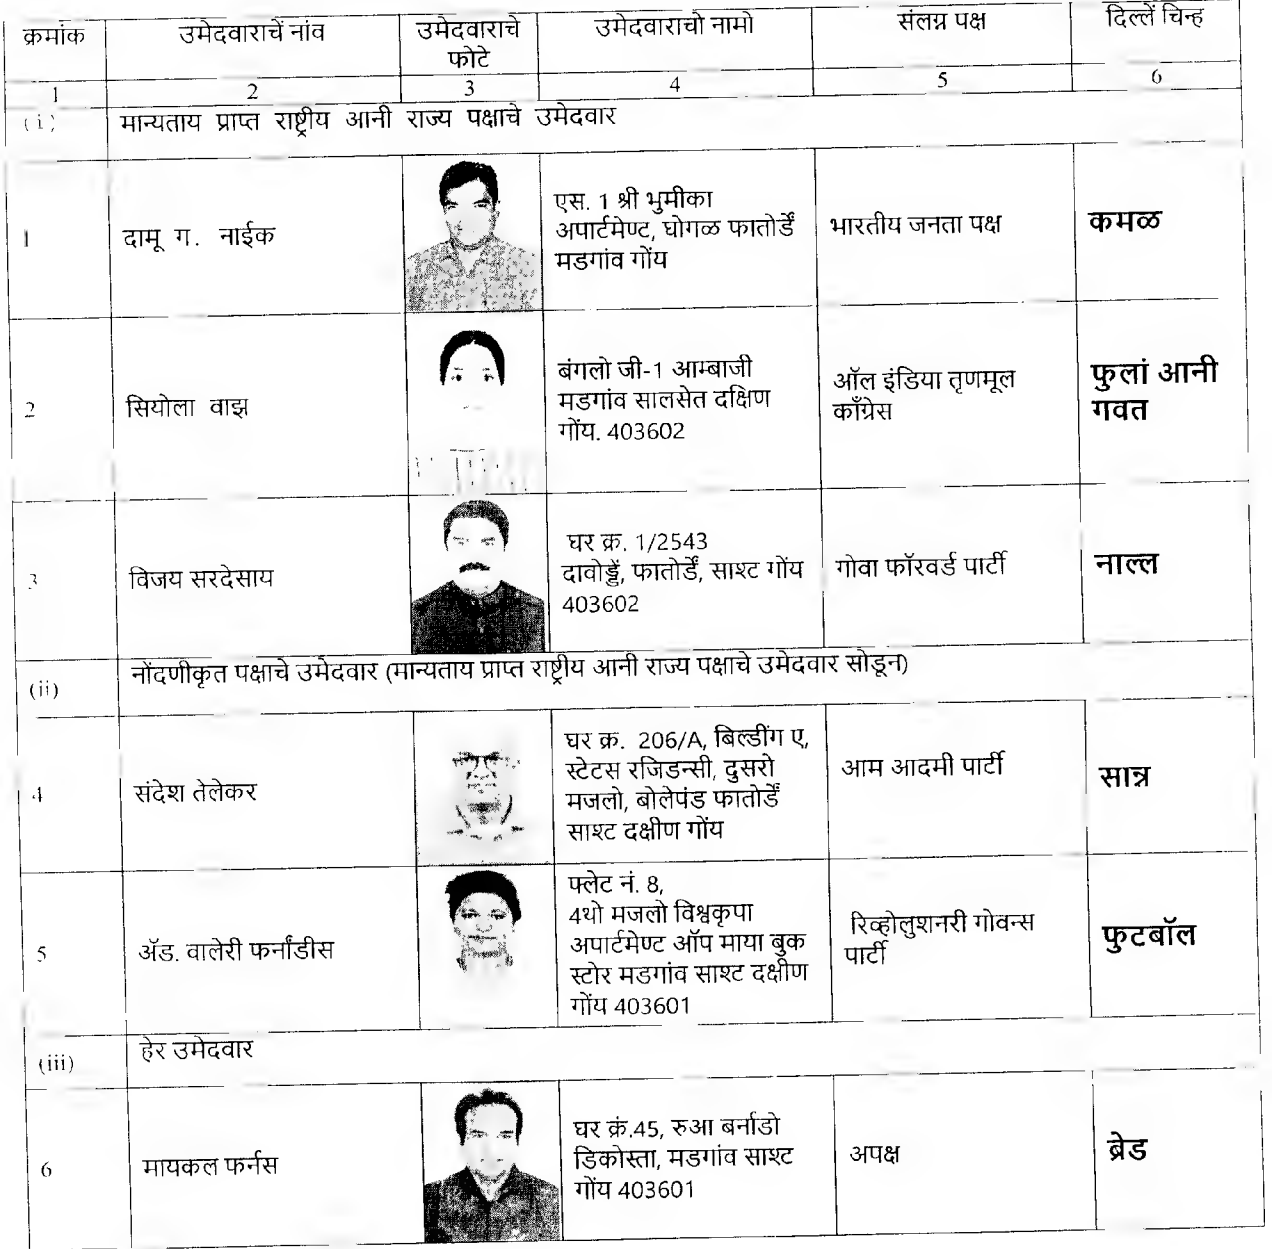 क्रमांक उमेदवाराचें नांव उमेदवाराचे उमेदवाराचो नामो संलग्न पक्ष दिल्लें चिन्ह
फोटे
1 2 3 4 5 6
(i) मान्यताय प्राप्त राष्ट्रीय आनी राज्य पक्षाचे उमेदवार
1 दामू ग. नाईक
एस. 1 श्री भुमीका
अपार्टमेण्ट, घोगळ फातोर्डें
मडगांव गोंय
भारतीय जनता पक्ष
कमळ
2 सियोला वाझ
बंगलो जी-1 आम्बाजी
मडगांव सालसेत दक्षिण
गोंय. 403602
ऑल इंडिया तृणमूल
काँग्रेस
फुलां आनी
गवत
3 विजय सरदेसाय
घर क्र. 1/2543
दावोड्डें, फातोर्डें, साश्ट गोंय
403602
गोवा फॉरवर्ड पार्टी
नाल्ल
(ii) नोंदणीकृत पक्षाचे उमेदवार (मान्यताय प्राप्त राष्ट्रीय आनी राज्य पक्षाचे उमेदवार सोडून)
4 संदेश तेलेकर
घर क्र. 206/A, बिल्डींग ए,
स्टेटस रजिडन्सी, दुसरो
मजलो, बोलेपंड फातोर्डें
साश्ट दक्षीण गोंय
आम आदमी पार्टी
सान्न
5 ॲड. वालेरी फर्नांडीस
फ्लेट नं. 8,
4थो मजलो विश्वकृपा
अपार्टमेण्ट ऑप माया बुक
स्टोर मडगांव साश्ट दक्षीण
गोंय 403601
रिव्होलुशनरी गोवन्स
पार्टी
फुटबॉल
(iii) हेर उमेदवार
6 मायकल फर्नस
घर क्रं.45, रुआ बर्नाडो
डिकोस्ता, मडगांव साश्ट
गोंय 403601
अपक्ष
ब्रेड